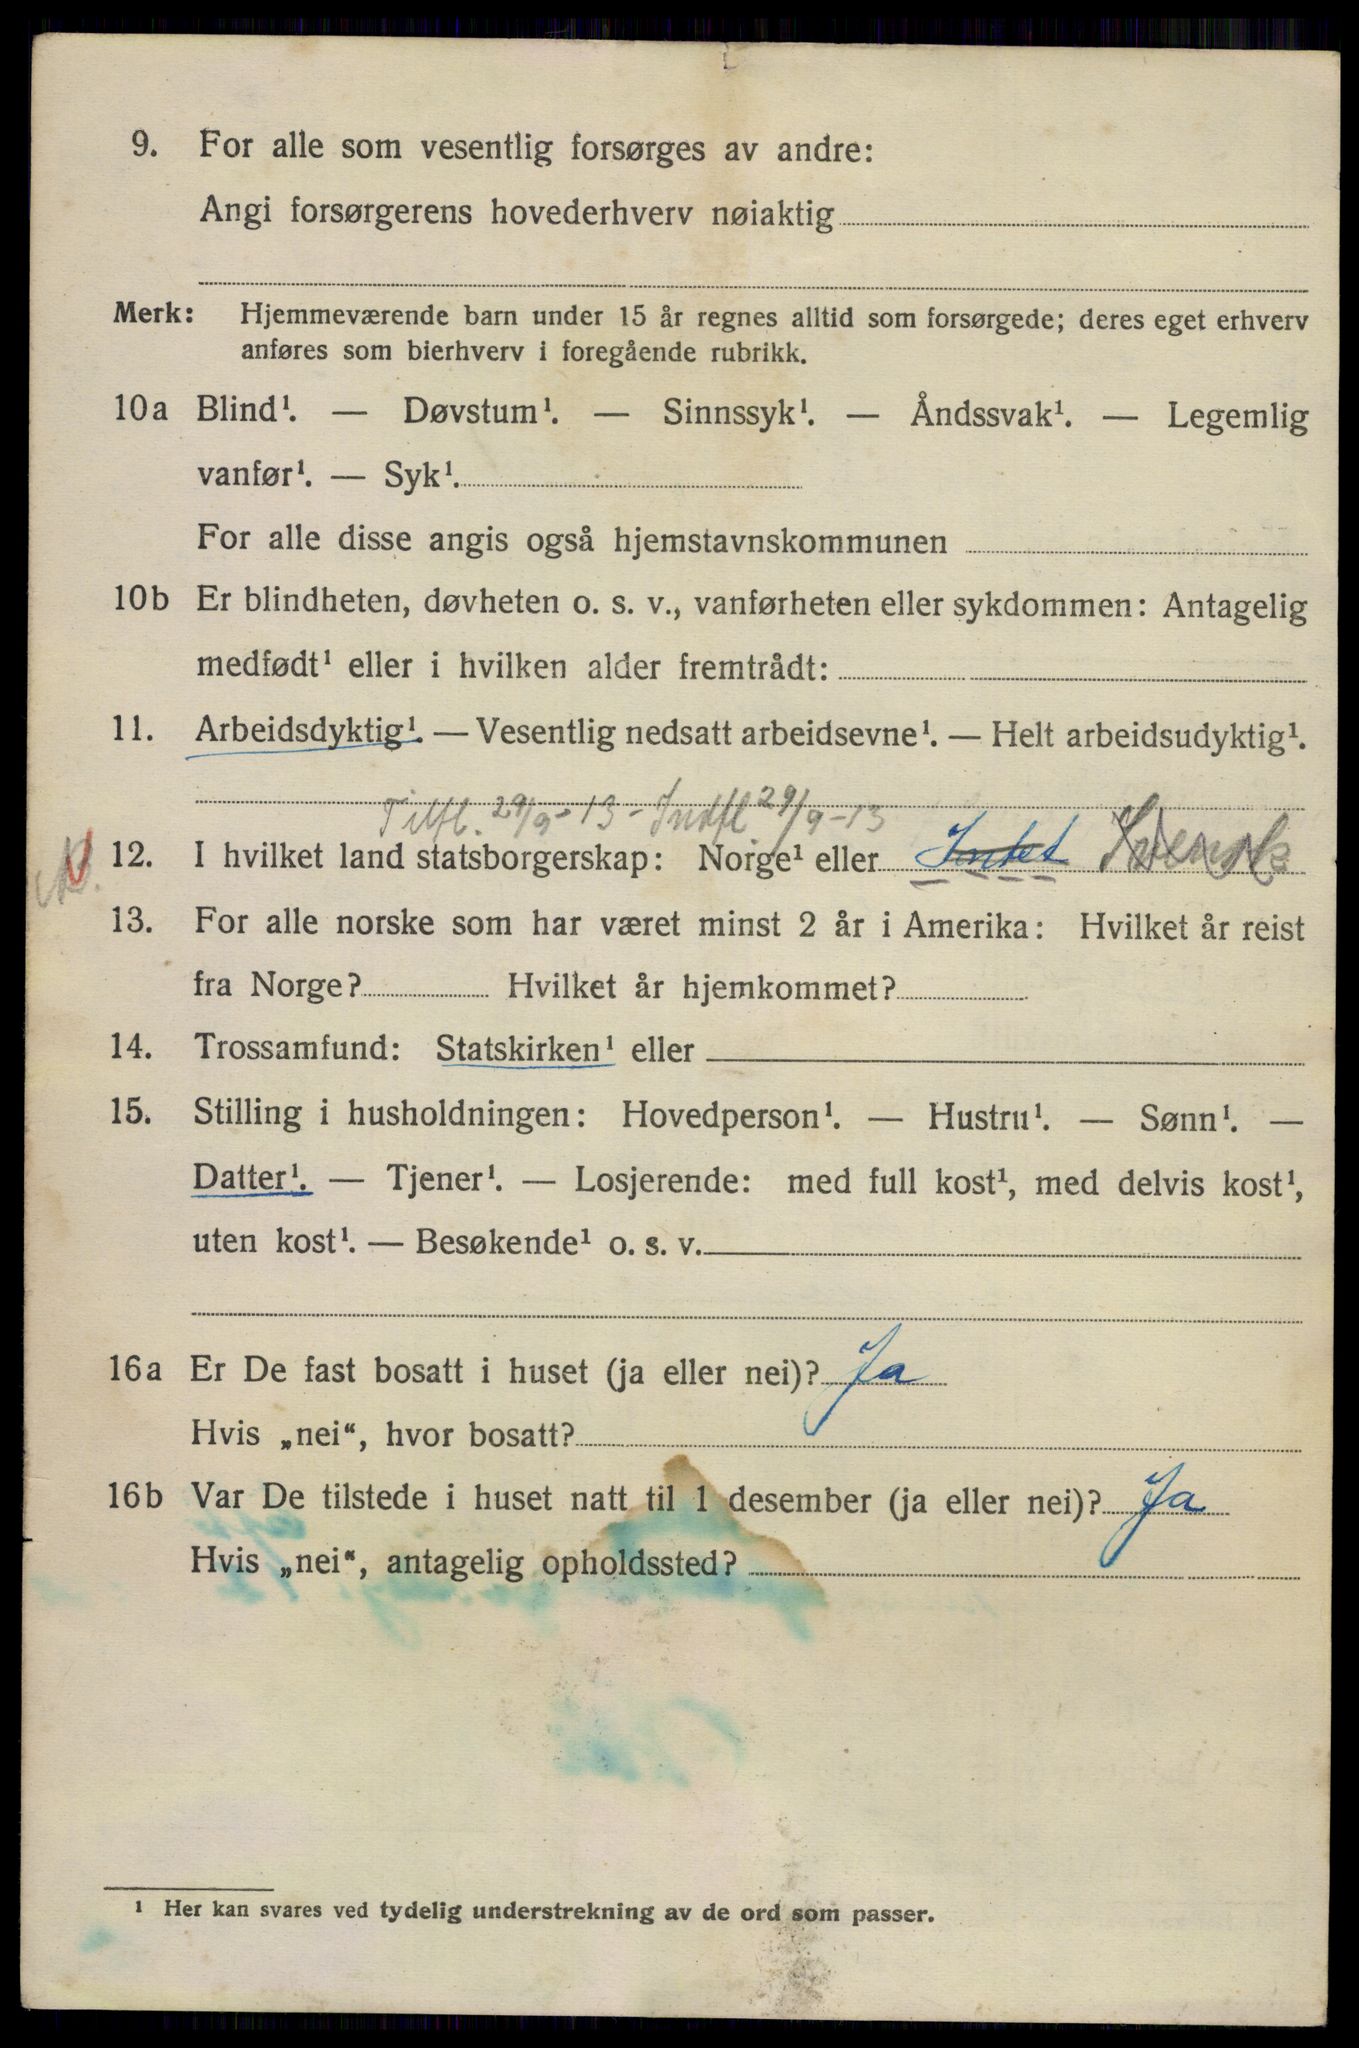 9. For alle som vesentlig forsørges av andre:
Angi forsørgerens hovederhverv nøiaktig
Merk: Hjemmeværende barn under 15 år regnes alltid som forsørgede; deres eget erhverv
anføres som bierhverv i foregående rubrikk.
10a Blind¹. — Døvstum¹. — Sinnssyk¹. — Åndssvak¹. — Legemlig
vanfør¹. — Syk¹.
For alle disse angis også hjemstavnskommunen
10b Er blindheten, døvheten o. s. v., vanførheten eller sykdommen: Antagelig
medfødt¹ eller i hvilken alder fremtrådt:
11. Arbeidsdyktig¹. — Vesentlig nedsatt arbeidsevne¹. — Helt arbeidsudyktig¹.
Tilfl. 29/9-13 - Indfl 29/9-13
12. I hvilket land statsborgerskap: Norge¹ eller Intet Svensk
13. For alle norske som har været minst 2 år i Amerika: Hvilket år reist
fra Norge? Hvilket år hjemkommet?
14. Trossamfund: Statskirken¹ eller
15. Stilling i husholdningen: Hovedperson¹. — Hustru¹. — Sønn¹. —
Datter¹. — Tjener¹. — Losjerende: med full kost¹, med delvis kost¹,
uten kost¹. — Besøkende¹ o. s. v.
16a Er De fast bosatt i huset (ja eller nei)? Ja
Hvis „nei“, hvor bosatt?
16b Var De tilstede i huset natt til 1 desember (ja eller nei)? Ja
Hvis „nei“, antagelig opholdssted?
¹ Her kan svares ved tydelig understrekning av de ord som passer.